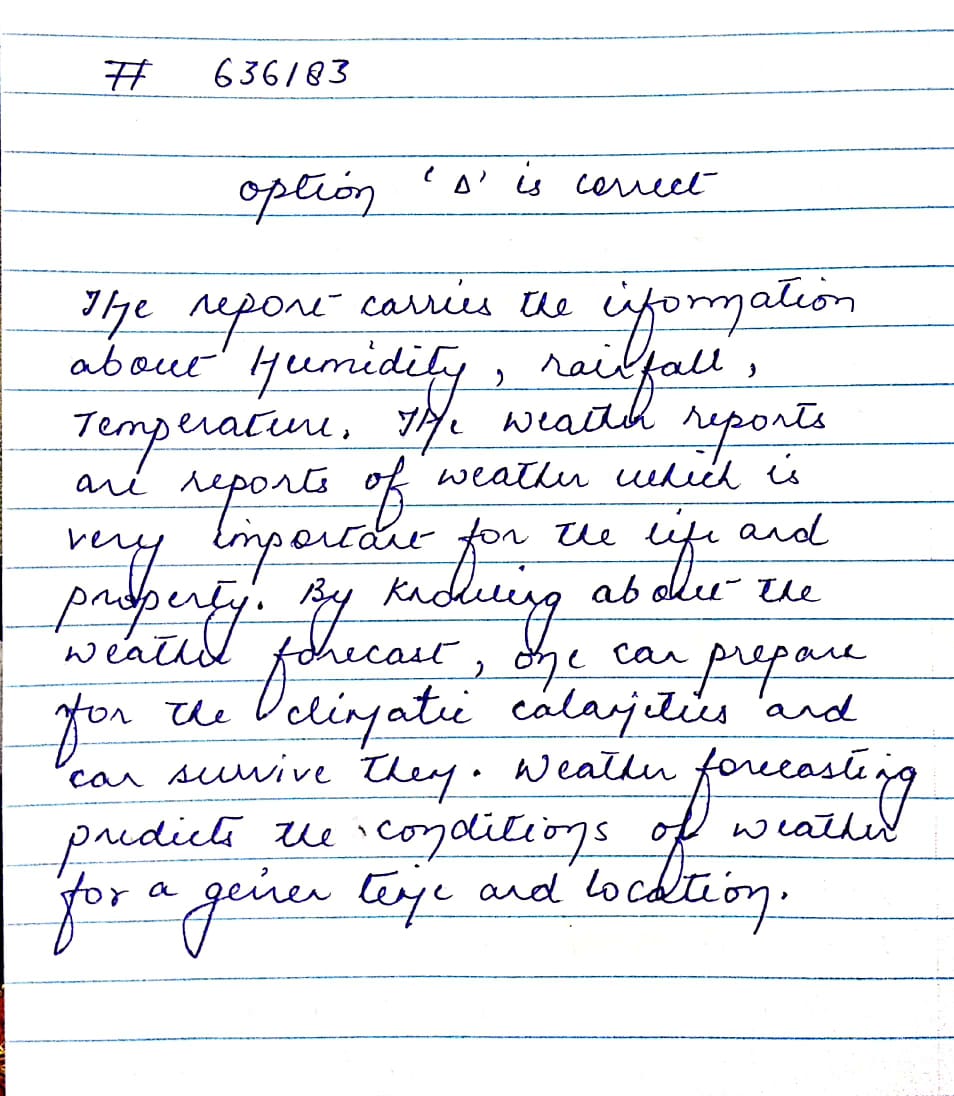 # 636183
option 'D' is correct
The report carries the information
about Humidity, rainfall,
Temperature. The weather reports
are reports of weather which is
very important for the life and
property. By Knowing about the
weather forecast, one can prepare
for the climatic calamities and
can survive them. Weather forecasting
predicts the conditions of weather
for a given time and location.